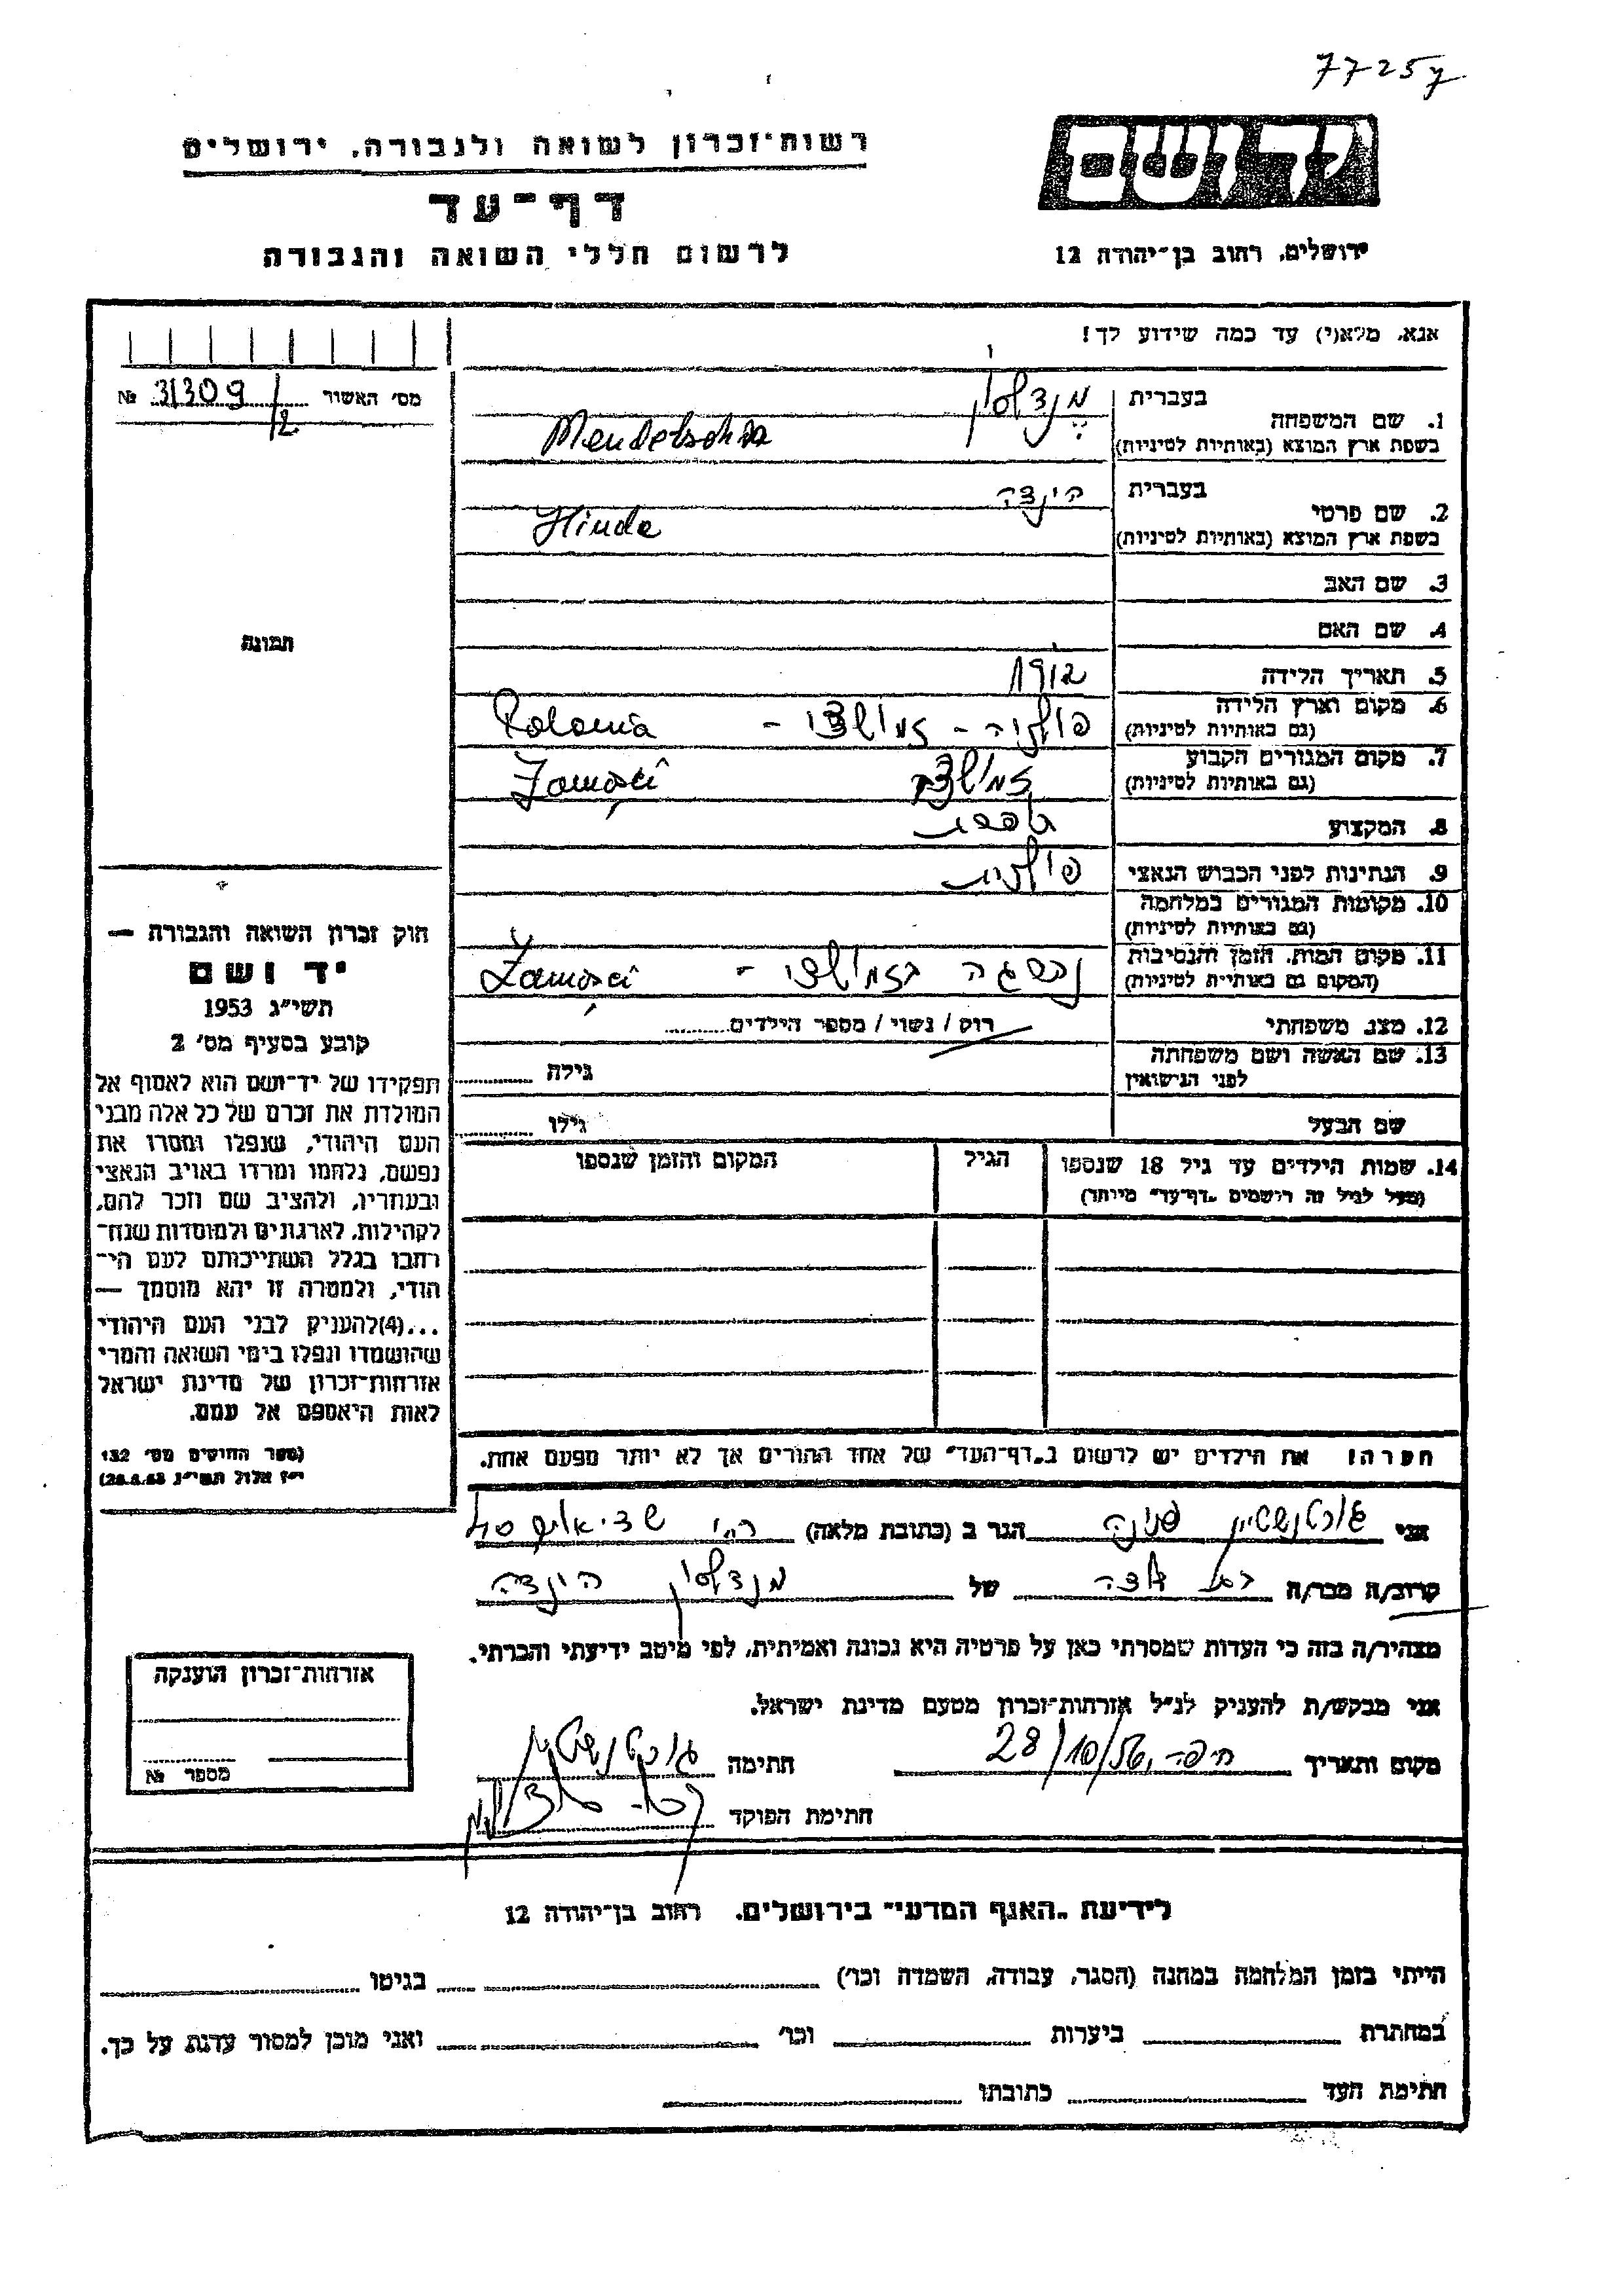 77257
רשות־זכרון לשואה ולגבורה, ירושלים
יד ושם
דף־עד
לרשום חללי השואה והגבורה
ירושלים, רחוב בן־יהודה 12
אנא, מלא(י) עד כמה שידוע לך!
מס׳ האשור 31309/2 №
1. שם המשפחה בעברית מנדלסון
בשפת ארץ המוצא (באותיות לטיניות) Mendelsohn
2. שם פרטי בעברית הינדה
בשפת ארץ המוצא (באותיות לטיניות) Hinda
3. שם האב
4. שם האם
תמונה
5. תאריך הלידה 1912
6. מקום וארץ הלידה (גם באותיות לטיניות) פולניה - זמושצ - Polonia
7. מקום המגורים הקבוע (גם באותיות לטיניות) Zamość
8. המקצוע
9. הנתינות לפני הכבוש הנאצי פולנית
10. מקומות המגורים במלחמה (גם באותיות לטיניות)
11. מקום המות, הזמן והנסיבות (המקום גם באותיית לטיניות) Zamość
12. מצב משפחתי רווק / נשוי / מספר הילדים
13. שם האשה ושם משפחתה לפני הנישואין גילה
שם הבעל גילו
14. שמות הילדים עד גיל 18 שנספו הגיל המקום והזמן שנספו
(מעל לגיל זה רושמים „דף־עד״ מיוחד)
חוק זכרון השואה והגבורה —
יד ושם
תשי״ג 1953
קובע בסעיף מס׳ 2
תפקידו של יד־ושם הוא לאסוף אל
המולדת את זכרם של כל אלה מבני
העם היהודי, שנפלו ומסרו את
נפשם, נלחמו ומרדו באויב הנאצי
ובעוזריו, ולהציב שם וזכר להם,
לקהילות, לארגונים ולמוסדות שנח־
רחבו בגלל השתייכותם לעם הי־
הודי, ולמטרה זו יהא מוסמך —
...(4)להעניק לבני העם היהודי
שהושמדו ונפלו בימי השואה והמרי
אזרחות־זכרון של מדינת ישראל
לאות היאספם אל עמם.
(ספר החוקים מס׳ 132
י״ז אלול תשי״ג 28.8.53)
הערה! את הילדים יש לרשום ב„דף־העד״ של אחד ההורים אך לא יותר מפעם אחת.
אני גורטנשטיין פנינה הגר ב (כתובת מלאה)
קרוב/ה מכר/ה של מנדלסון הינדה
מצהיר/ה בזה כי העדות שמסרתי כאן על פרטיה היא נכונה ואמיתית, לפי מיטב ידיעתי והכרתי.
אני מבקש/ת להעניק לנ״ל אזרחות־זכרון מטעם מדינת ישראל.
מקום ותאריך חיפה, 28/10/56 חתימה
חתימת הפוקד
אזרחות־זכרון הוענקה
מספר №
לידיעת „האגף המדעי״ בירושלים, רחוב בן־יהודה 12
הייתי בזמן המלחמה במחנה (הסגר, עבודה, השמדה וכו׳) בגיטו
במחתרת ביערות וכו׳ ואני מוכן למסור עדות על כך.
חתימת העד כתובתו